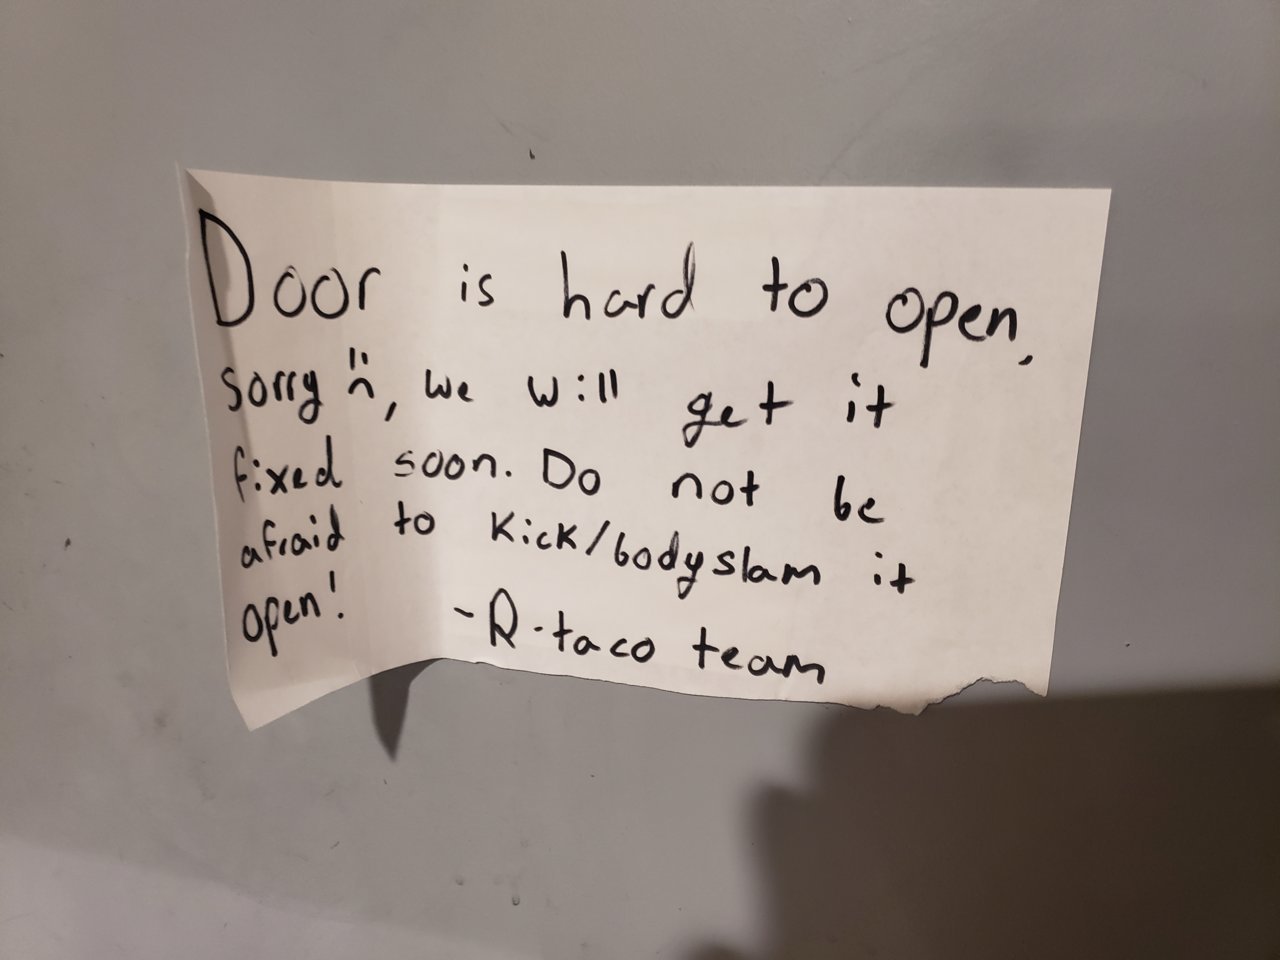 Door is hard to open,
sorry :(, we will get it
fixed soon. Do not be
afraid to kick/bodyslam it
open!
-R-taco team